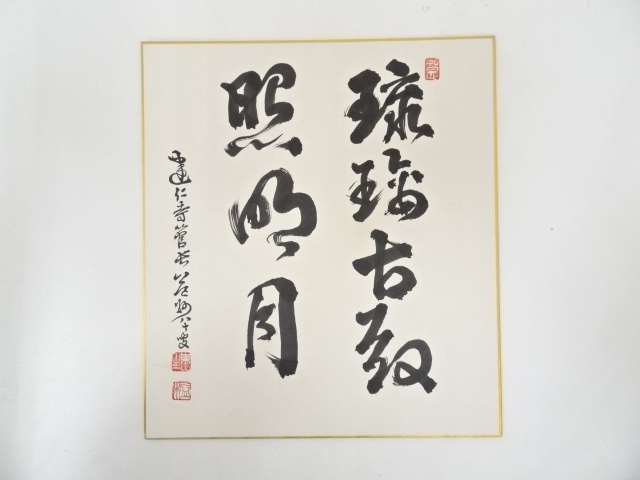 琉璃古殿
照明月
建仁寺管長益州八十叟